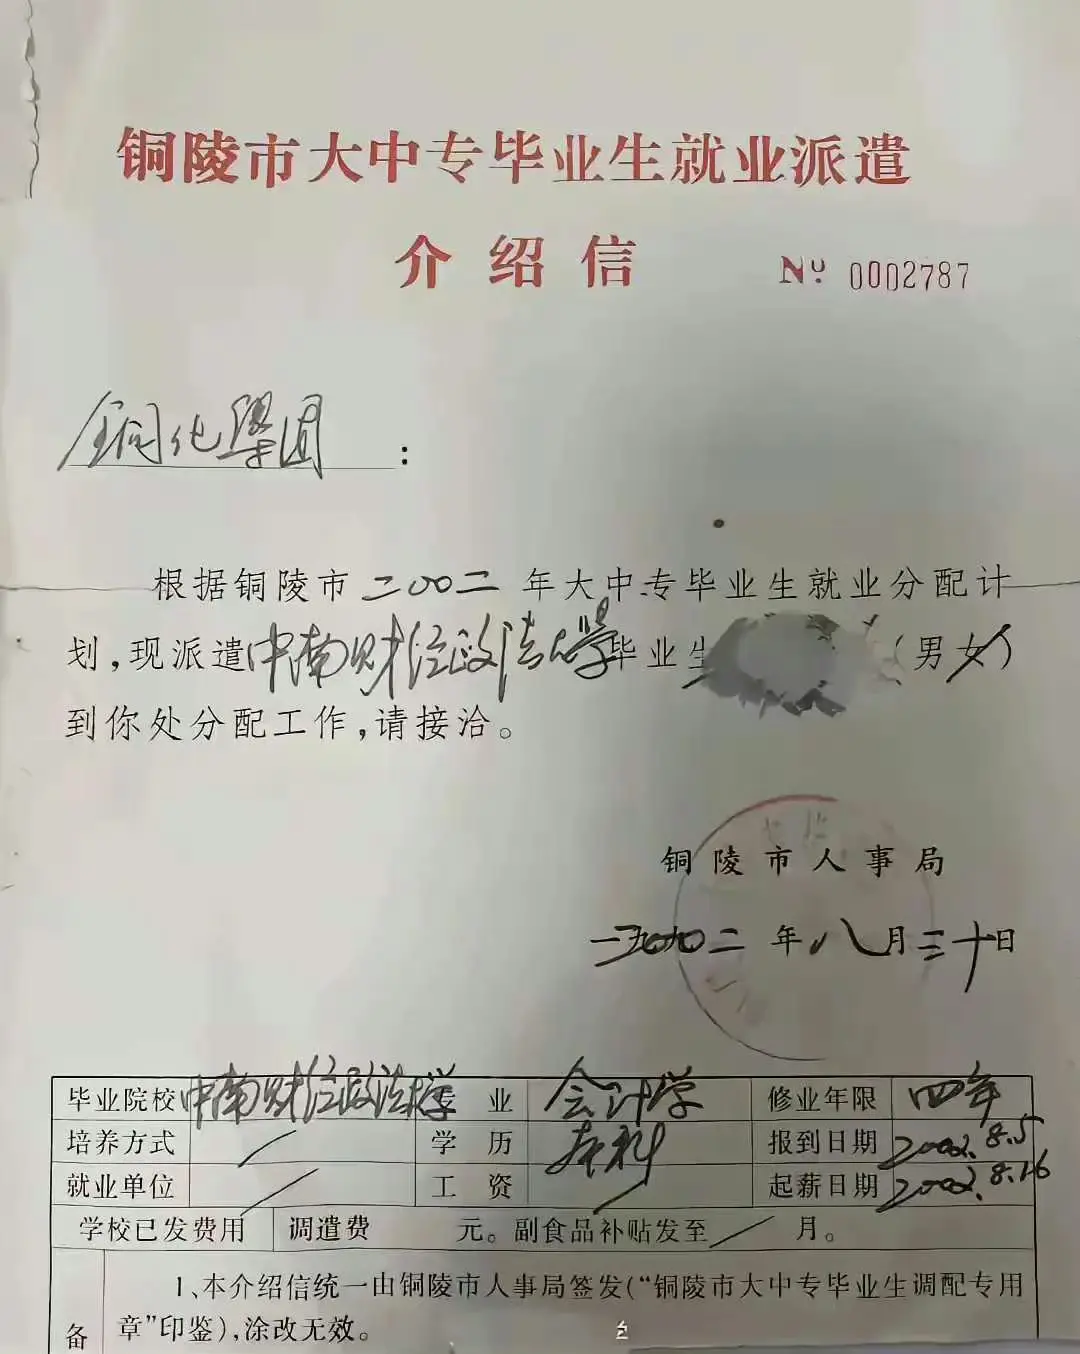 铜陵市大中专毕业生就业派遣
介绍信 Nº 0002787
铜化集团：
根据铜陵市二00二年大中专毕业生就业分配计
划，现派遣中南财经政法大学毕业生（男女）
到你处分配工作，请接洽。
铜陵市人事局
二00二年八月三十日
毕业院校 中南财经政法大学 专业 会计学 修业年限 四年
培养方式 / 学历 本科 报到日期 2002.8.5
就业单位 / 工资 / 起薪日期 2002.8.16
学校已发费用 调遣费 元。副食品补贴发至 / 月。
1、本介绍信统一由铜陵市人事局签发（“铜陵市大中专毕业生调配专用
备 章”印鉴），涂改无效。